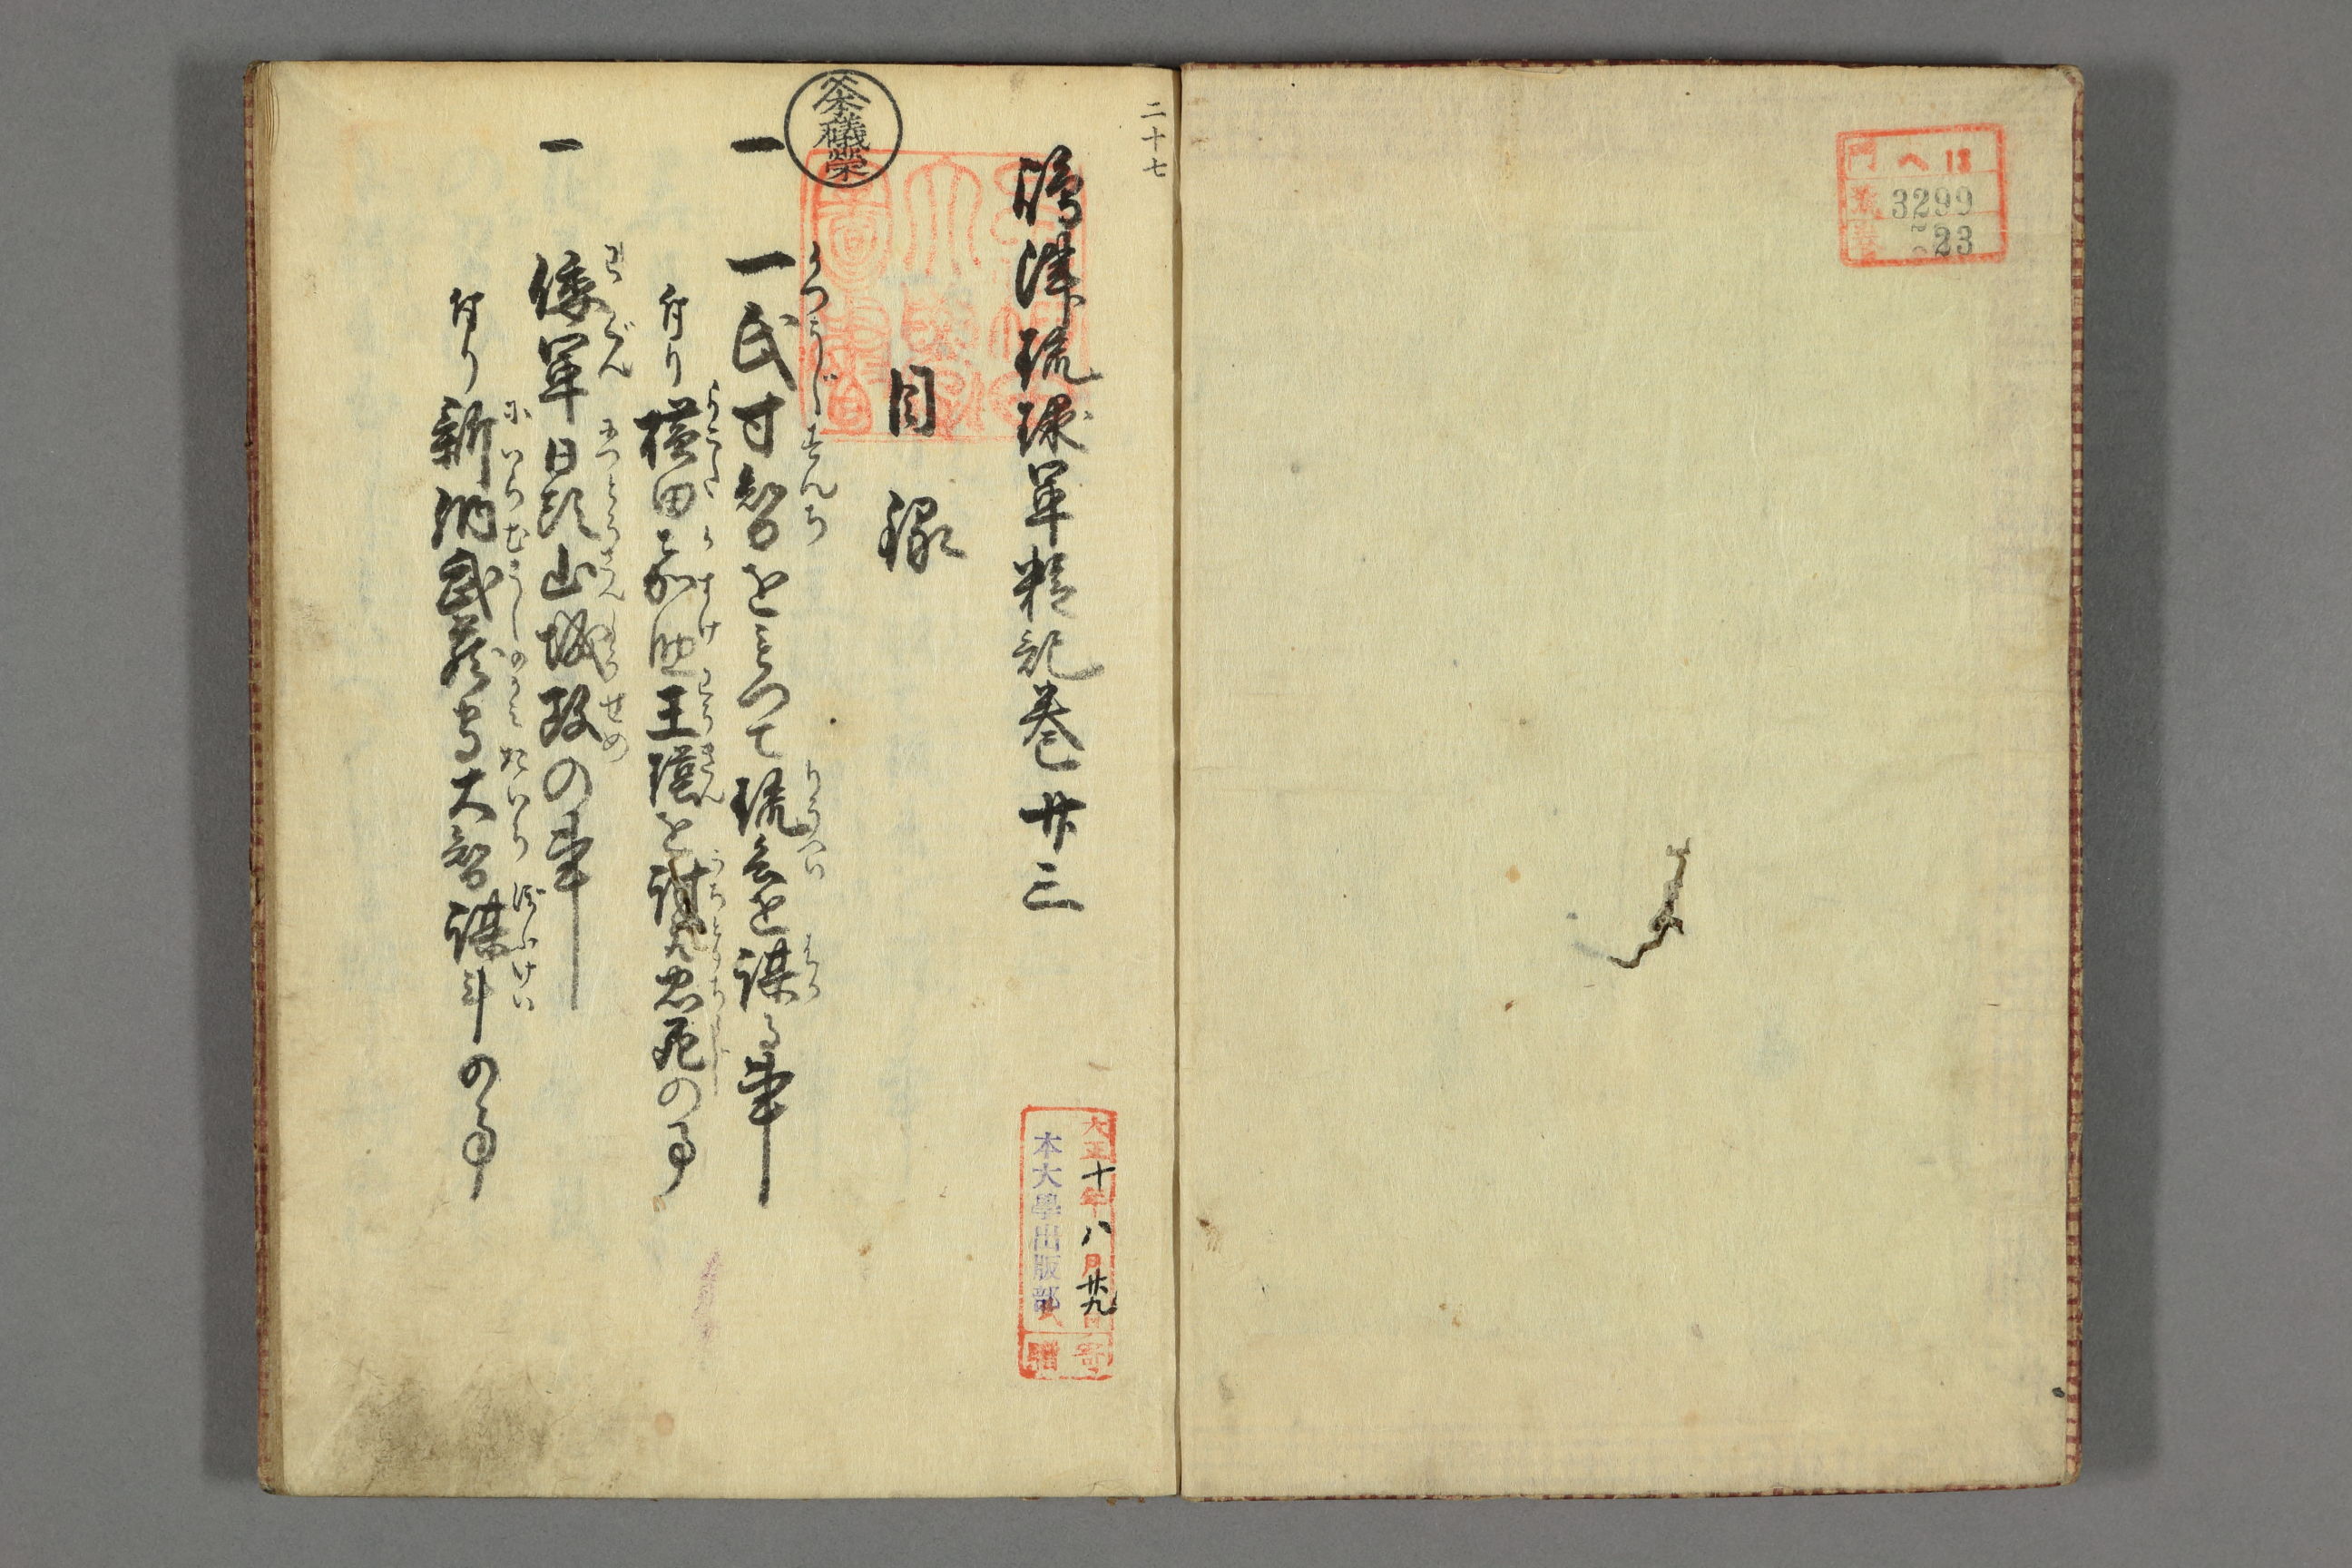 門 ヘ13
號 3299
23
二十七
嶋津琉球軍精記巻廿三
目録
一 一氏寸智をもつて琉兵を謀る事
付り横田嘉助王瑞を討取忠死の事
一 倭軍日頭山城攻の事
付り新納武蔵守大智謀斗の事
大正十年八月廿九日
本大學出版部
寄贈